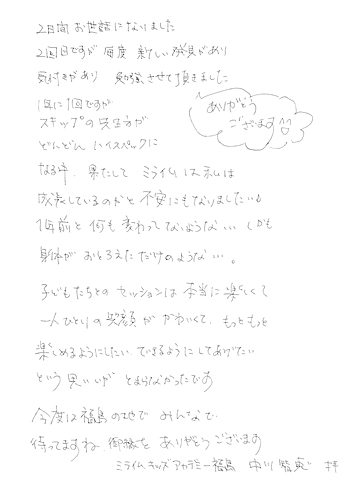 2日間お世話になりました
2回目ですが毎度 新しい発見があり
気付きがあり 勉強させて頂きました
1年に1回ですが
スキップの先生方が
どんどんハイスペックに
なる中、果たして ミライムは私は
成長しているのかと不安にもなりました
1年前と何も変わってないような… しかも
身体がおとろえただけのような…。
ありがとう
ございます
子どもたちとのセッションは本当に楽しくて
一人ひとりの笑顔がかわいくて、もっともっと
楽しめるようにしたい、できるようにしてあげたい
という思いが とまらなかったです
今度は福島の地で みんなで
待ってますね 御縁を ありがとうございます
ミライムキッズアカデミー福島 中川 拝